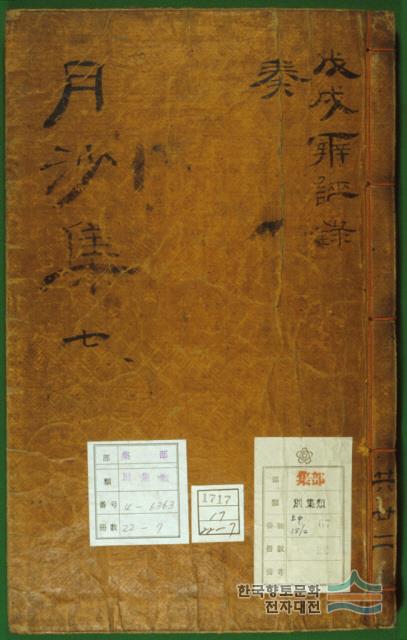 戊戌辨誣錄
奏
月沙集 七
共廿二
部 集部
類 別集類
番号 4-6363
冊数 22-7
1717
17
22-7
集部
別集類
한국향토문화
전자대전